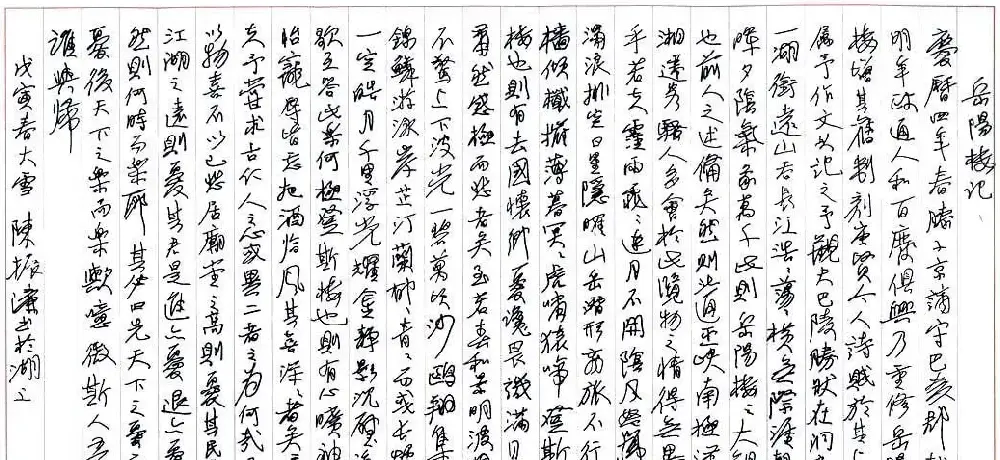 岳陽樓记
慶曆四年春滕子京谪守巴陵郡
明年政通人和百廢俱興乃重修岳
樓增其舊制刻唐賢今人詩賦於其
屬予作文以記之予觀夫巴陵勝狀在洞
一湖銜遠山吞長江浩〻蕩〻橫無際涯朝
暉夕陰氣象萬千此則岳陽樓之大觀
也前人之述備矣然則北通巫峽南極瀟
湘遷客騷人多會於此覽物之情得無異
乎若夫霪雨霏〻連月不開陰风怒號
濁浪排空日星隱曜山岳潛形商旅不行
檣傾檝摧薄暮冥〻虎嘯猿啼登斯
樓也則有去國懷鄉憂讒畏譏滿目
蕭然感極而悲者矣至若春和景明波
不驚上下天光一碧萬頃沙鷗翔集
錦鱗游泳岸芷汀蘭郁〻青〻而或長煙
一空皓月千里浮光耀金靜影沉璧漁
歌互答此樂何極登斯樓也則有心曠神
怡寵辱皆忘把酒临风其喜洋〻者矣
夫予嘗求古仁人之心或異二者之為何哉
以物喜不以己悲居廟堂之高則憂其民
江湖之遠則憂其君是進亦憂退亦憂
然則何時而樂耶其必曰先天下之憂
憂後天下之樂而樂歟噫微斯人吾
誰與歸
戊寅春大雪 陳振濂书於湖上